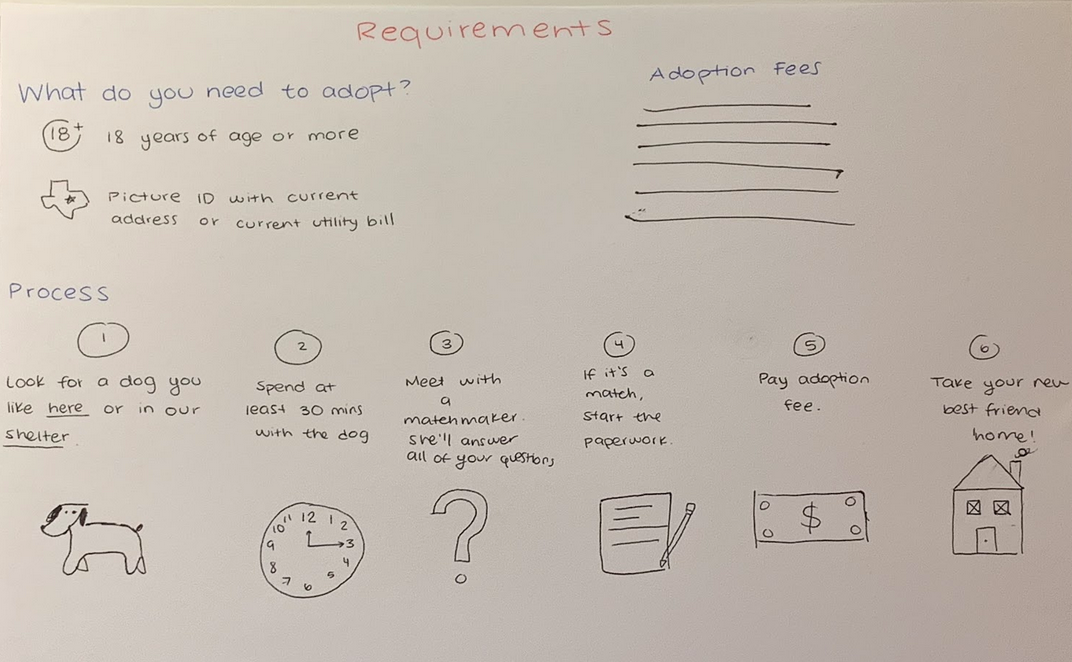 Requirements
What do you need to adopt?
18+ 18 years of age or more
Picture ID with current
address or current utility bill
Adoption Fees
Process
1
Look for a dog you
like here or in our
shelter.
2
Spend at
least 30 mins
with the dog
12
1
2
3
4
5
6
7
8
9
10
11
3
Meet with
a
matchmaker.
she'll answer
all of your questions
?
4
If it's a
match,
start the
paperwork.
5
Pay adoption
fee.
$
6
Take your new
best friend
home!